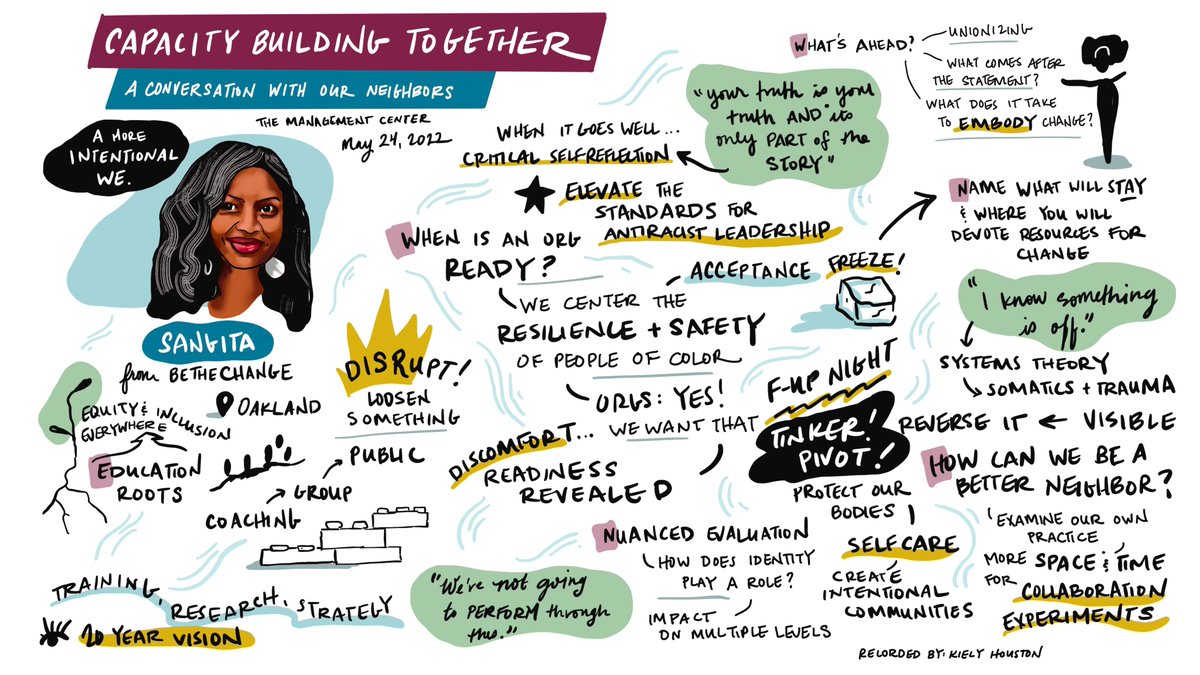 CAPACITY BUILDING TOGETHER
A CONVERSATION WITH OUR NEIGHBORS
THE MANAGEMENT CENTER
May 24, 2022
A MORE
INTENTIONAL
WE.
SANGITA
from BETHECHANGE
OAKLAND
EQUITY & INCLUSION
EVERYWHERE
EDUCATION
ROOTS
COACHING
GROUP
PUBLIC
TRAINING, RESEARCH, STRATEGY
20 YEAR VISION
DISRUPT!
LOOSEN
SOMETHING
WHEN IT GOES WELL...
CRITICAL SELF REFLECTION
"your truth is your
truth AND its
only PART of the
STORY"
ELEVATE THE
STANDARDS FOR
ANTIRACIST LEADERSHIP
WHEN IS AN ORG
READY?
WE CENTER THE
RESILIENCE + SAFETY
OF PEOPLE OF COLOR
ACCEPTANCE
FREEZE!
ORGS: YES!
WE WANT THAT
DISCOMFORT...
READINESS
REVEALED
"We're not going
to PERFORM through
this."
NUANCED EVALUATION
HOW DOES IDENTITY
PLAY A ROLE?
IMPACT
ON MULTIPLE LEVELS
F-UP NIGHT
TINKER!
PIVOT!
PROTECT OUR
BODIES
SELFCARE
CREATE
INTENTIONAL
COMMUNITIES
WHAT'S AHEAD?
UNIONIZING
WHAT COMES AFTER
THE STATEMENT?
WHAT DOES IT TAKE
TO EMBODY CHANGE?
NAME WHAT WILL STAY
& WHERE YOU WILL
DEVOTE RESOURCES FOR
CHANGE
"I know something
is off."
SYSTEMS THEORY
SOMATICS + TRAUMA
REVERSE IT ← VISIBLE
HOW CAN WE BE A
BETTER NEIGHBOR?
EXAMINE OUR OWN
PRACTICE
MORE SPACE & TIME
FOR COLLABORATION
EXPERIMENTS
RECORDED BY: KIELY HOUSTON